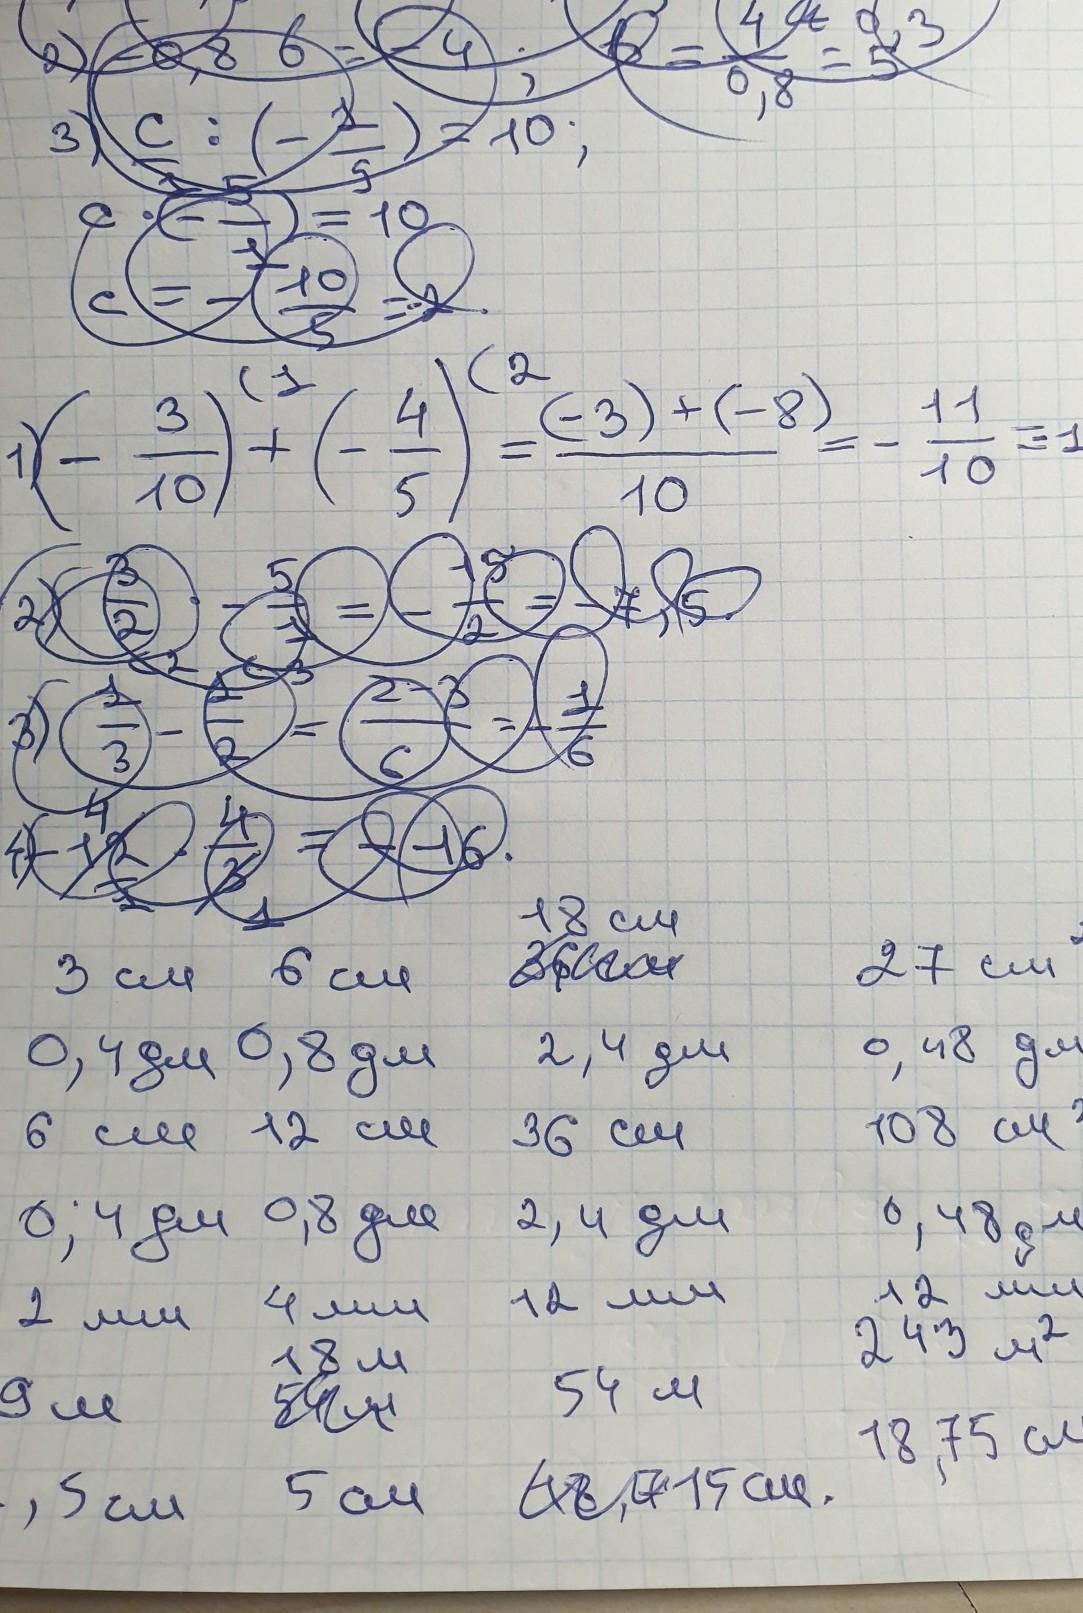 2) -0,8 6 = -4; 6 = 4/0,8 = 5
3) c/1 : (-1/5) = 10;
c · (-5/1) = 10
c = - 10/5 = -2.
1) (-3/10)(1 + (-4/5)(2 = (-3)+(-8)/10 = -11/10 = 1
2) 3/2 · -5/1 = -15/2 = -7,5
3) 1/3(2 - 1/2(3 = 2-3/6 = -1/6
4) -12 · 4/3 = -16.
18 см
3 см 6 см 27 см²
0,4 дм 0,8 дм 2,4 дм 0,48 дм
6 см 12 см 36 см 108 см²
0,4 дм 0,8 дм 2,4 дм 0,48 дм
2 мм 4 мм 12 мм 12 мм
18 м 243 м²
9 м 54 м
18,75 см
,5 см 5 см 15 см.